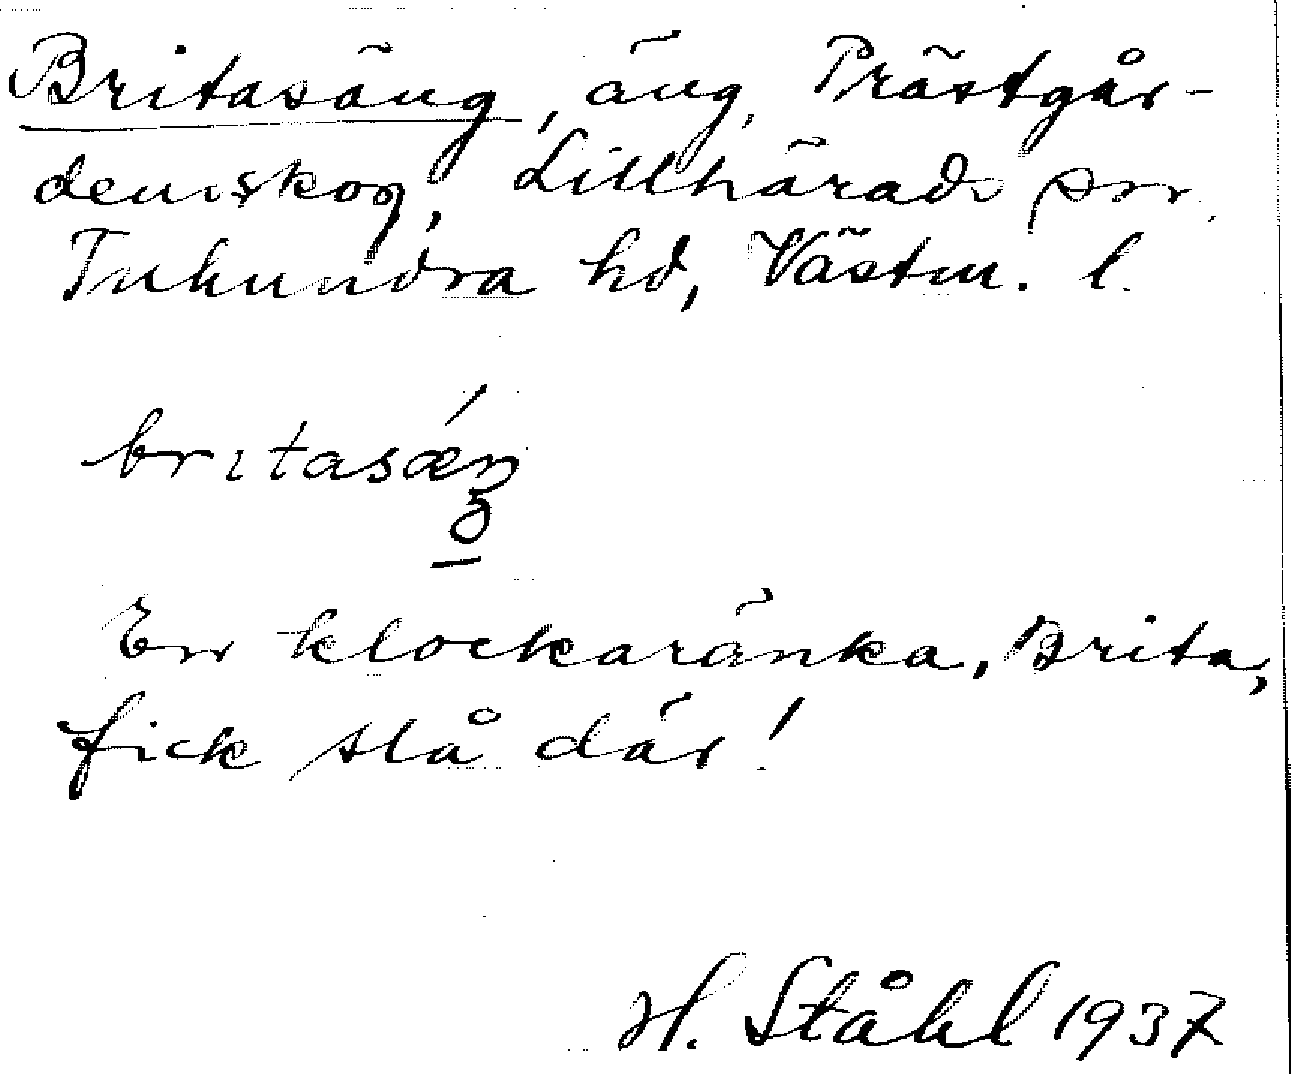 Britasäng, äng, Prästgår-
denskog, Lillhärads sn.
Tuhundra hd, Västm. l.
britasǽŋ
En klockaränka, Brita,
fick slå där!
H. Ståhl 1937